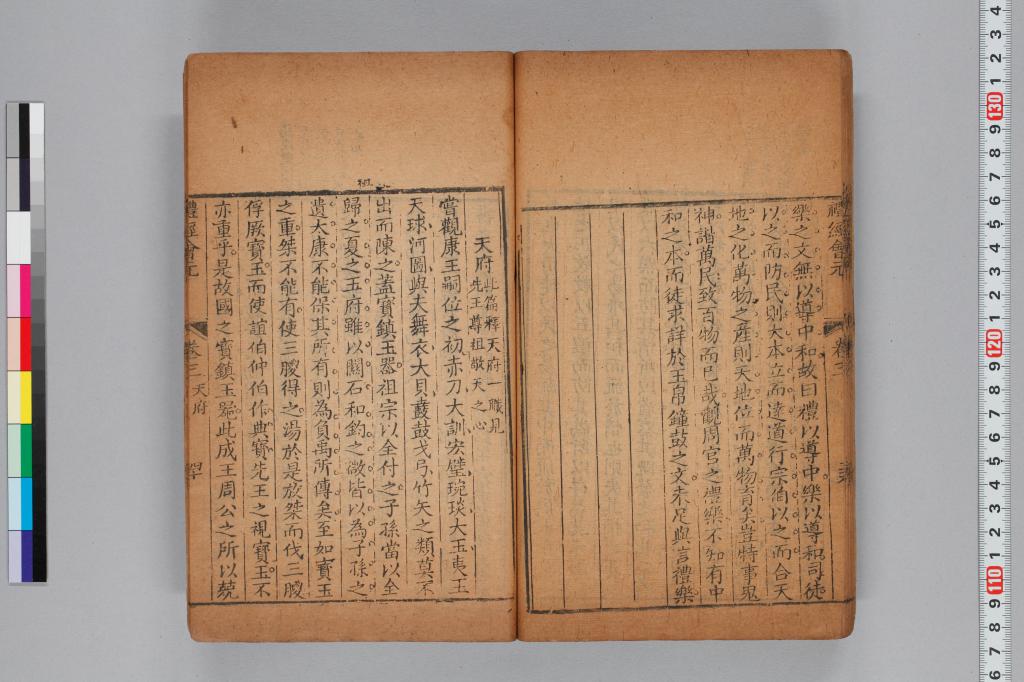 樂之文無以導中和故曰禮以導中樂以導和司徒
以之而防民則大本立而達道行宗伯以之而合天
地之化萬物之產則天地位而萬物育矣豈特事鬼
神諧萬民致百物而已哉觀周官之禮樂不知有中
和之本而徒求詳於玉帛鐘鼓之文未足與言禮樂
禮經會元
卷三
天府
此篇釋天府一職見
先王尊祖敬天之心
嘗觀康王嗣位之初赤刀大訓宏璧琬琰大玉夷玉
天球河圖與夫舞衣大貝鼖鼓戈弓竹矢之類莫不
出而陳之蓋寶鎮玉器祖宗以全付之子孫當以全
歸之夏之玉府雖以關石和鈞之微皆以為子孫之
遺大康不能保其所有則為負禹所傳矣至如寶玉
之重桀不能有使三朡得之湯於是放桀而伐三朡
俘厥寶玉而使誼伯仲伯作典寶先王之視寶玉不
亦重乎是故國之寶鎮玉器此成王周公之所以兢
禮經會元
卷三
天府